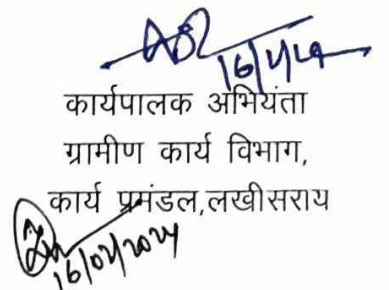 कार्यपालक अभियंता
ग्रामीण कार्य विभाग,
कार्य प्रमंडल,लखीसराय
16/02/2024